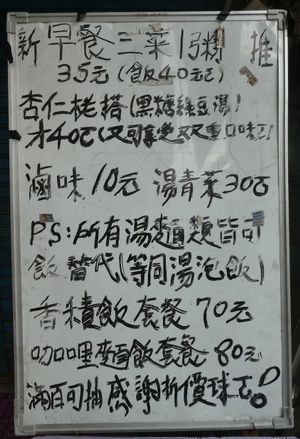 新早餐三菜1粥 推
35元(飯40元)
杏仁桃搭(黑糖綠豆湯)
才40元(又可享受双重口味)
滷味10元 湯青菜30元
PS:所有湯麵類皆可
飯替代(等同湯泡飯)
香積飯套餐70元
咖哩麵飯套餐80元
滿百可抽感謝折價球